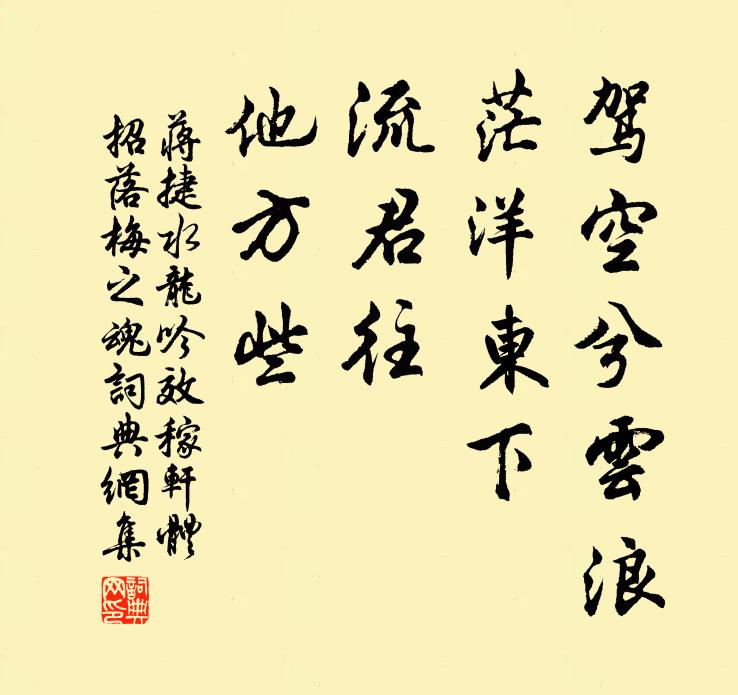 駕空兮雲浪
茫洋東下
流君往
他方些
蔣捷水龍吟效稼軒體
招落梅之魂詞典網集
詞典
网印